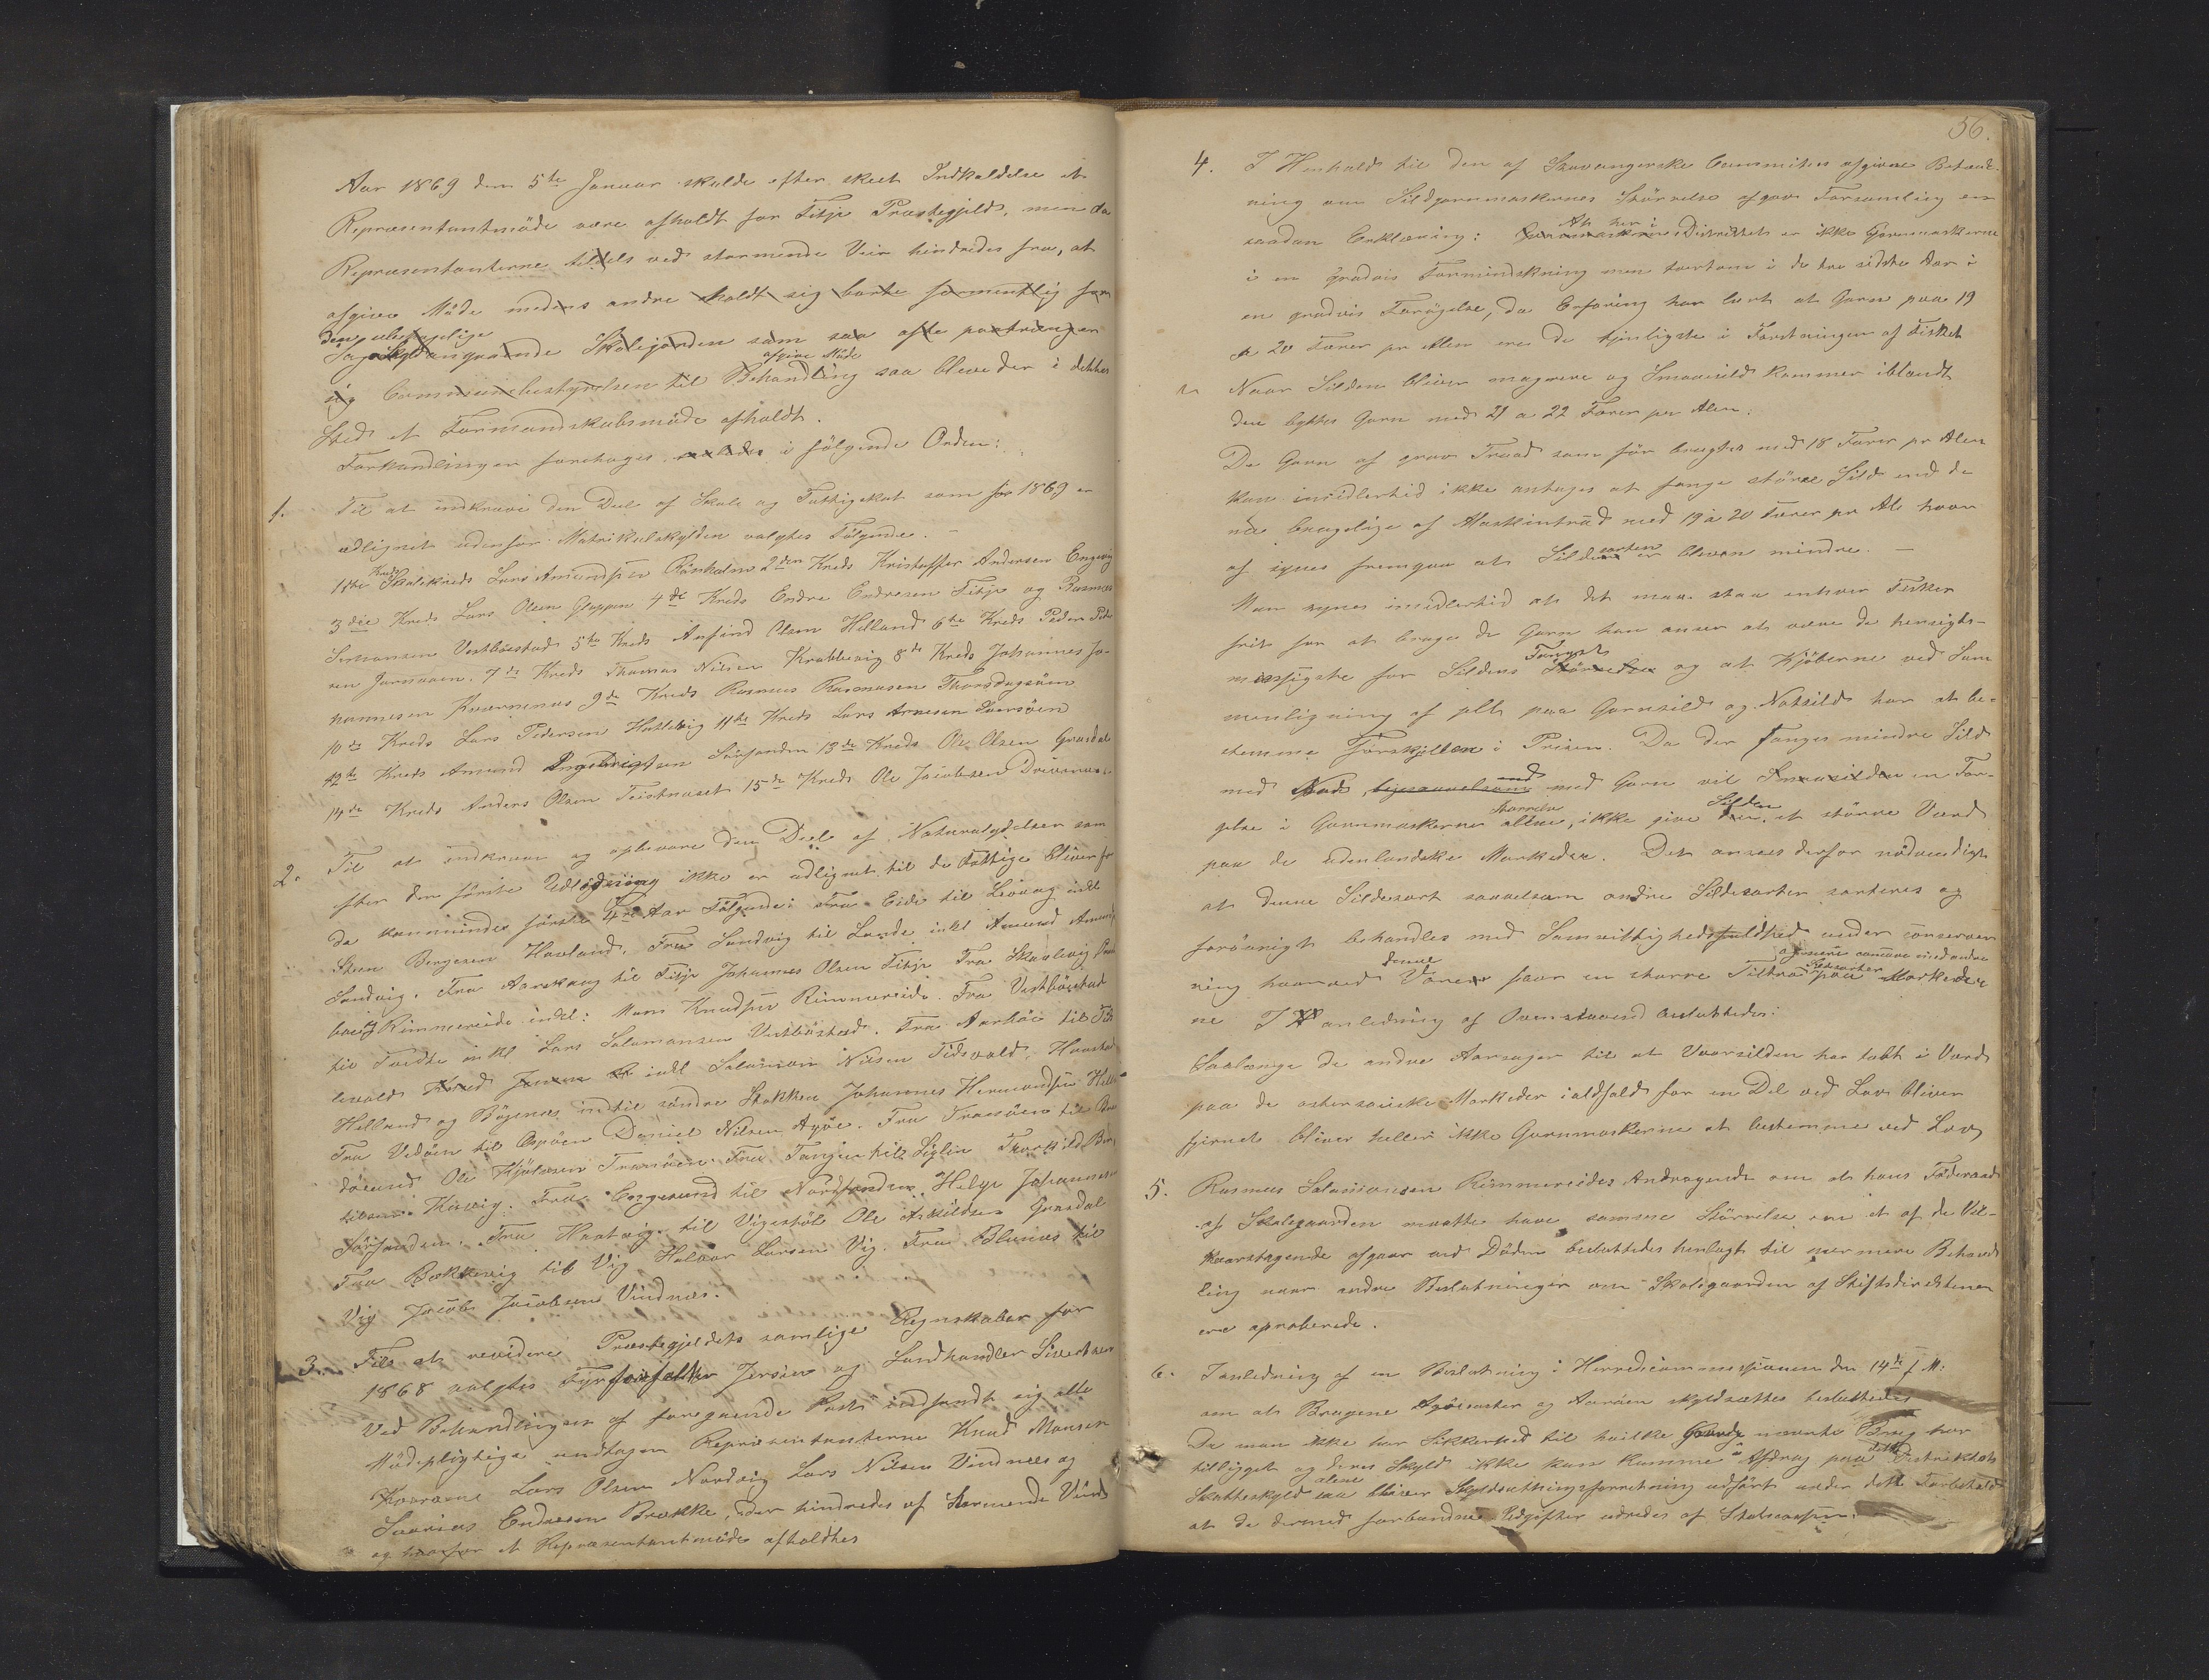 Aar 1869 den 5te Januar skulde efter skeet Indkaldelse et
Repræsentantmöde være afholdt for Fitje Præstegjeld, men da
Repræsentanterne tildels ved stormende Veir hindredes fra, at
afgive Möde medens andre holdt sig borte formentlig for
den ubehagelige
Sag angaaende Skolejorden som saa ofte paatrænger
afgive Möde
sig Communebestyrelsen til Behandling saa blev der i dets
Sted et Formandskabsmöde afholdt.
Forhandlingen foretoges saaledes i fölgende Orden:
1. Til at indkræve den Deel af Skole og Fattigskat som for 1869 er
udlignet udenfor Matrikulskylden valgtes Fölgende.
Kreds
1ste Skolekreds Lars Amundsen Rönholm 2den Kreds Kristoffer Andersen Engevig
3die Kreds Lars Olsen Gloppen 4de Kreds Endre Endresen Fitje og Rasmus
Simonsen Vestböstad 5te Kreds Anfind Olsen Helland 6te Kreds Peder Peder
sen 7de Kreds Thomas Nilsen Krabbevig 8de Kreds Johannes Jo-
hannesen Kværnenes 9de Kreds Rasmus Rasmusen Thorsdagsöen
10de Kreds Lars Pedersen Hatlevig 11te Kreds Lars Arnesen
12te Kreds Amund Ingebrigtsen Sörsanden 13de Kreds Ole Olsen Grasdal
14de Kreds Anders Olsen Teistnæset 15de Kreds Ole Jacobsen Drivenes
2. Til at indkræve og opbevare den Deel af Naturalydelsen som
efter den förste Udlodning ikke er udlignet til de Fattige bliver for
de kommende förste 4re Aar Fölgende: Fra Eide til Levaag inkl
Steen Bergesen Havland. Fra Sandvig til Lande inkl Amund Amunds
Sandvig. Fra Aarskaug til Fitje Johannes Olsen Fitje Fra Skaalevig
Rimmereide inkl: Mons Knudsen Rimmereide. Fra Vestböstad
til Tveite inkl Lars Salamonsen Vestböstad. Fra Aarhöi til
inkl Salamon Nilsen Tidsvold,
Helland og Böjenes indtil söndre Stokken Johannes Hermandsen
Fra Vedöen til Aspöen Daniel Nilsen Agöe. Fra Tranöen til
Ole Kjölesen Tranöen. Fra Tangen til Siglen Thorkild
Kidevig. Fra Engesund til Nordsanden Helge Johannesen
Sörsanden. Fra Haatvig til Vigestöl Ole Askildsen Grasdal
Fra Bækkevig til Vig Halvor Larsen Vig. Fra Blænes til
Vig Jacob Jacobsen Vindnæs.
3. Til at revidere Præstegjeldets samlige Regnskaber for
1868 valgtes Fyrforvalter Jersin og Landhandler Sivertsen
Ved Behandlingen af foregaaende Post indfandt sig alle
Mödepligtige undtagen Repræsentanterne Knud Monsen
Lars Olsen Nordvig Lars Nilsen Vindnæs og
Severius Endresen Brække, der hindredes af stormende Veir
og et Repræsentantmöde afholdtes
56.
4. I Henhold til den af Stavangerske Committes afgivne Betænk-
ning om Sildgarnmaskernes Störrelse afgav Forsamling en
At her i
saadan Erklæring: Districtet er ikke Garnmaskerne
i en gradvis Formindskning men tvertom i de tre sidste Aar i
en gradvis Forögelse, da Erfaring har lært at Garn paa 19
a 20 Farer pr Alen ere de tjenligste i Foretningen af Fisket
Naar Silden bliver magrere og Smaasild kommer iblandt
den byttes Garn med 21 a 22 Farer pr Alen.
De Garn af grov Traad som för brugtes med 18 Farer pr Alen
kan imidlertid ikke antages at fange större Sild end de
nu brugelige af Maskintraad med 19 à 20 Farer pr Al hvor
sorten
af synes fremgaa at Silde er bleven mindre. —
Man synes imidlertid at det maa staa enhver Fisker
frit for at bruge de Garn han anser at være de hensigts-
Fangst
messigste for Sildens Störrelse og at Kjöberne ved Sam
menligning af selt paa Garnsild og Notsild har at be-
stemme Forskjellen i Prisen. Da der fanges mindre Sild
end
med Nod, ligesaavelsom med Garn vil Smaasilden en For-
Störrelse Silden
gelse i Garnmaskernes allene, ikke give den et större Værd
paa de udenlandske Markeder. Det ansees derfor nödvendigt
at denne Sildesort saavelsom andre Sildesorter sorteres og
forövrigt behandles med Samvittighedsfuldhed under conserver
denne
ning hvorved Varen faar en större Tiltro paa Markeder
ne I Anledning af Ovenstaaende besluttedes:
Saalænge de andre Aarsager til at Vaarsilden har tabt i Værd
paa de östersöiske Markeder ialdfald for en Del ved Lov bliver
fjernet bliver heller ikke Garnmaskerne at bestemme ved Lov
5. Rasmus Salamonsen Rimmereides Andragende om at hans Föderaad
af Skolegaarden maatte have samme Störrelse om et af de Vil-
kaarstagende afgaar ved Döden besluttedes henlagt til nærmere Behand
ling naar andre Beslutninger om Skolegaarden af Stiftsdirektionen
ere aproberede.
6. I anledning af en Beslutning i Herredscommissionen den 14de f. M:
om at Brugene Agöeoster og Aaröen skyldsættes besluttedes
Da man ikke har Sikkerhed til hvilke Gaarde nævnte Brug har
tilligget og deres Skyld ikke kan komme i Afdrag paa dette Districtets
alene
Skatteskyld saa bliver Skyldsætningsforretning udfört under dett Forbehold
at de dermed forbundne Udgifter udredes af Skolecassen.